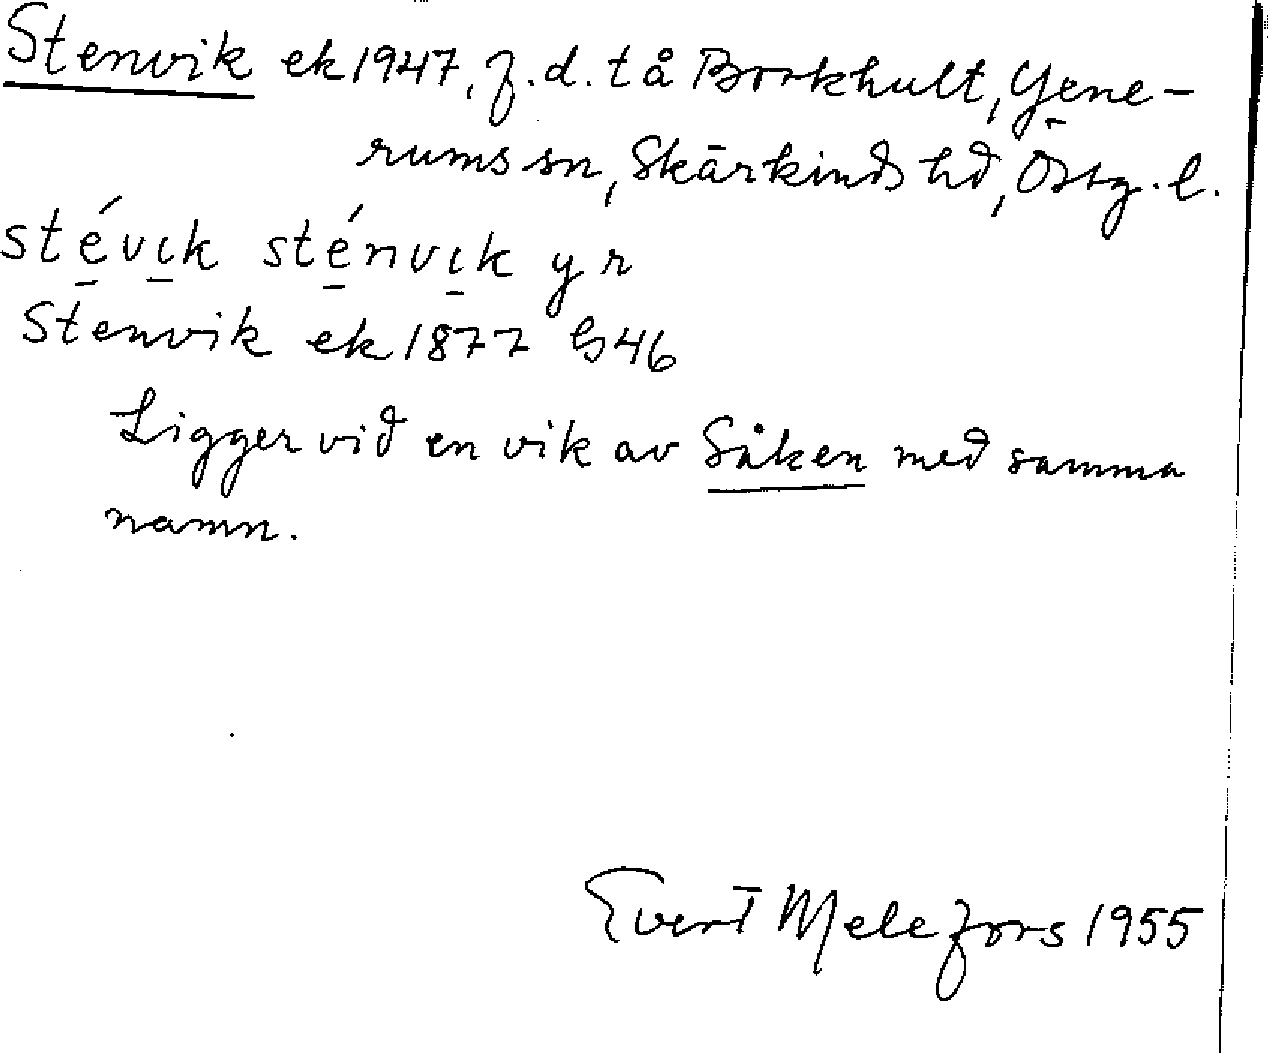 Stenvik ek 1947, f.d. tå Borkhult, Yxne-
rums sn, Skärkinds hd, Östg. l.
stévık sténvık yr
Stenvik ek 1877 G46
Ligger vid en vik av Såken med samma
namn.
Evert Melefors 1955